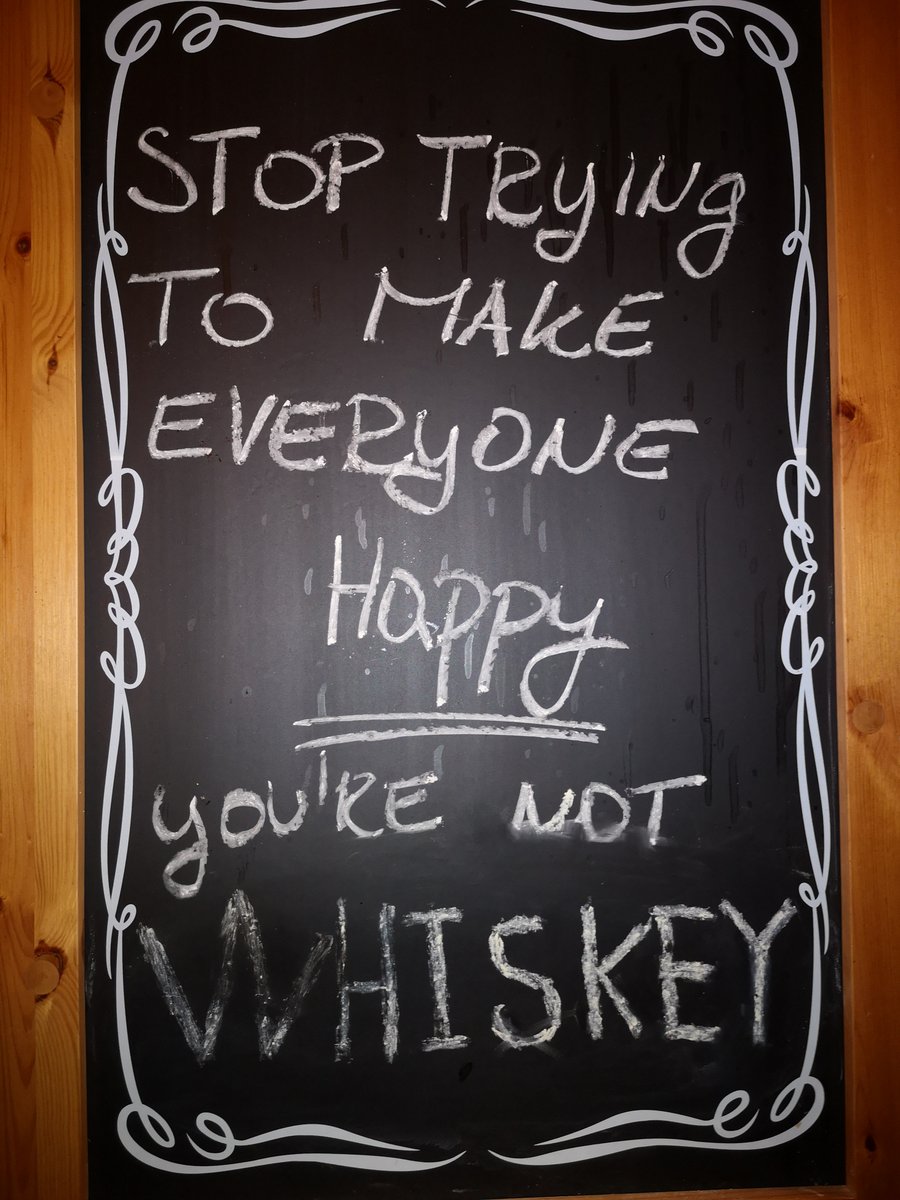 STOP TRYING
TO MAKE
EVERYONE
Happy
YOU'RE NOT
WHISKEY